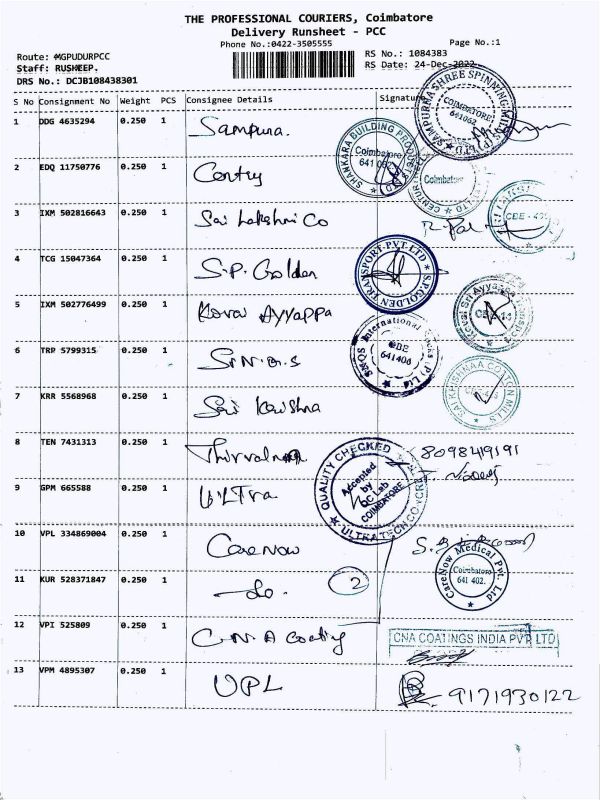 THE PROFESSIONAL COURIERS, Coimbatore
Delivery Runsheet - PCC
Phone No.:0422-3505555
Page No.:1
Route: #MGPUDURPCC
RS No.: 1084383
Staff: RUSHEEP.
RS Date: 24-Dec-2022
DRS No.: DCJB108438301
S No Consignment No Weight PCS Consignee Details Signature
1 DDG 4635294 0.250 1 Sampurna.
SAMPURNA SHREE SPINNING MILLS (P) LTD
COIMBATORE
641062
SHANKARA BUILDING PRODUCTS
Coimbatore
2 EDQ 11750776 0.250 1 Centry
Coimbatore
3 IXM 502816643 0.250 1 Sai Lakshmi Co
CBE
4 TCG 15047364 0.250 1 S.P. Golden
S.P.GOLDEN TRANSPORT PVT. LTD
5 IXM 502776499 0.250 1 Kovai Ayyappa
Kovai Sri Ayyappa Transport
6 TRP 5799315 0.250 1 Sr.N.G.S
International
(P) Ltd
CBE
641406
7 KRR 5568968 0.250 1 Sai Krishna
SAI KRISHNAA COTTON MILLS
8 TEN 7431313 0.250 1
8098419191
QUALITY CHECKED
Accepted
by
QC Lab
COIMBATORE
ULTRA TECH CONCRETE
9 GPM 665588 0.250 1 ULTra
10 VPL 334869004 0.250 1 CareNow
CareNow Medical Pvt. Ltd
Coimbatore
641 402.
11 KUR 528371847 0.250 1 -do. 2
12 VPI 525809 0.250 1 C.N.A Coating
CNA COATINGS INDIA PVT LTD
13 VPM 4895307 0.250 1 UPL
9171930122